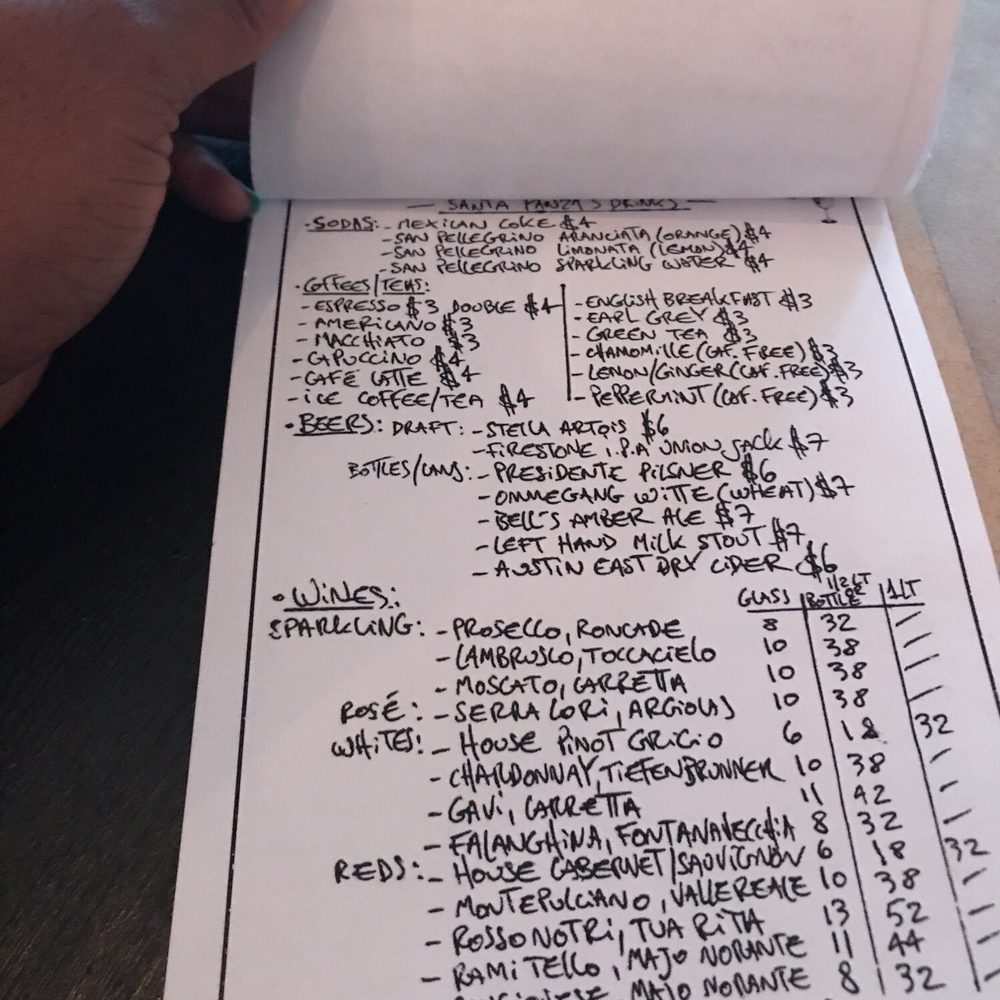 SANTA PANZA'S DRINKS
• SODAS: - MEXICAN COKE $4
- SAN PELLEGRINO ARANCIATA (ORANGE) $4
- SAN PELLEGRINO LIMONATA (LEMON) $4
- SAN PELLEGRINO SPARKLING WATER $4
• COFFEES/TEAS:
- ESPRESSO $3 DOUBLE $4
- AMERICANO $3
- MACCHIATO $3
- CAPUCCINO $4
- CAFÉ LATTE $4
- ICE COFFEE/TEA $4
- ENGLISH BREAKFAST $3
- EARL GREY $3
- GREEN TEA $3
- CHAMOMILLE (CAF. FREE) $3
- LEMON/GINGER (CAF. FREE) $3
- PEPPERMINT (CAF. FREE) $3
• BEERS: DRAFT: - STELLA ARTOIS $6
- FIRESTONE I.P.A UNION JACK $7
BOTTLES/CANS: - PRESIDENTE PILSNER $6
- OMMEGANG WITTE (WHEAT) $7
- BELL'S AMBER ALE $7
- LEFT HAND MILK STOUT $7
- AUSTIN EAST DRY CIDER $6
• WINES: GLASS 1/2 LT BOTTLE 1LT
SPARKLING: - PROSECCO, RONCADE 8 32 -
- LAMBRUSCO, TOCCACIELO 10 38 -
- MOSCATO, CARRETTA 10 38 -
ROSÉ: - SERRA LORI, ARGIOLAS 10 38 -
WHITES: - HOUSE PINOT GRIGIO 6 18 32
- CHARDONNAY, TIEFENBRUNNER 10 38 -
- GAVI, CARRETTA 11 42 -
- FALANGHINA, FONTANAVECCHIA 8 32 -
REDS: - HOUSE CABERNET/SAUVIGNON 6 18 32
- MONTEPULCIANO, VALLEREALE 10 38 -
- ROSSO NOTRI, TUA RITA 13 52 -
- RAMITELLO, MAJO NORANTE 11 44 -
MAJO NORANTE 8 32 -